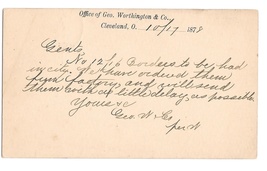 Office of Geo. Worthington & Co.,
Cleveland, O. 10/17 1878
Gents,
No 12 Borders to be had
in city. We have ordered them
from factory and will send
them with as little delay as possible
Yours &c
Geo. W. & Co
per W